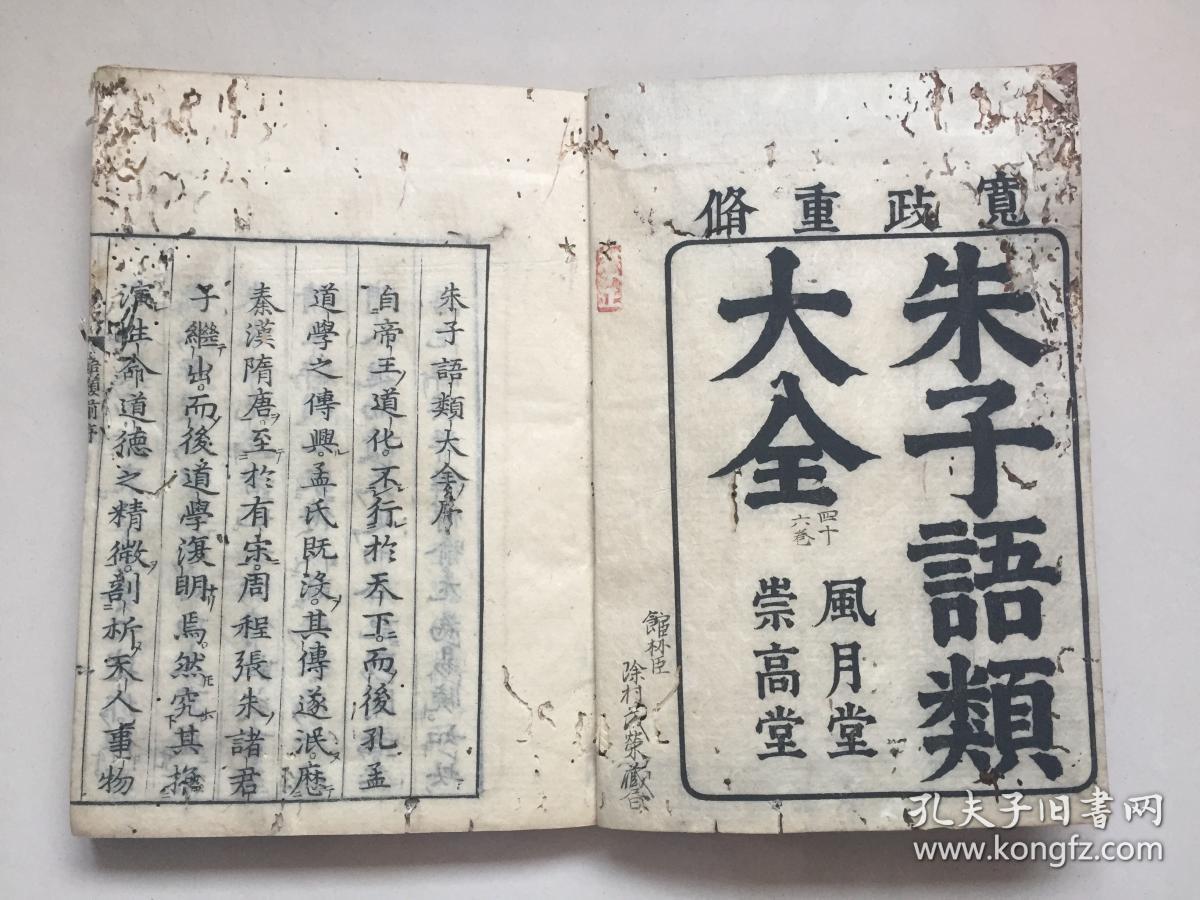 寬政重脩
朱子語類
大全
四十
六巻
風月堂
崇高堂
館林臣
除村
榮藏
朱子語類大全序
自帝王道化不行於天下而後孔孟
道學之傳興孟氏既沒其傳遂泯歷
秦漢隋唐至於有宋周程張朱諸君
子繼出而後道學復明焉然究其撫
演性命道德之精微剖析天人事物
語類前序
孔夫子旧书网
www.kongfz.com